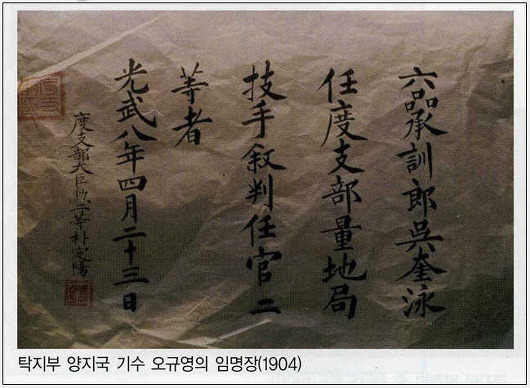 六品承訓郎吳奎泳
任度支部量地局
技手敍判任官二
等者
光武八年四月二十三日
度支部大臣勳二等朴定陽
탁지부 양지국 기수 오규영의 임명장(1904)